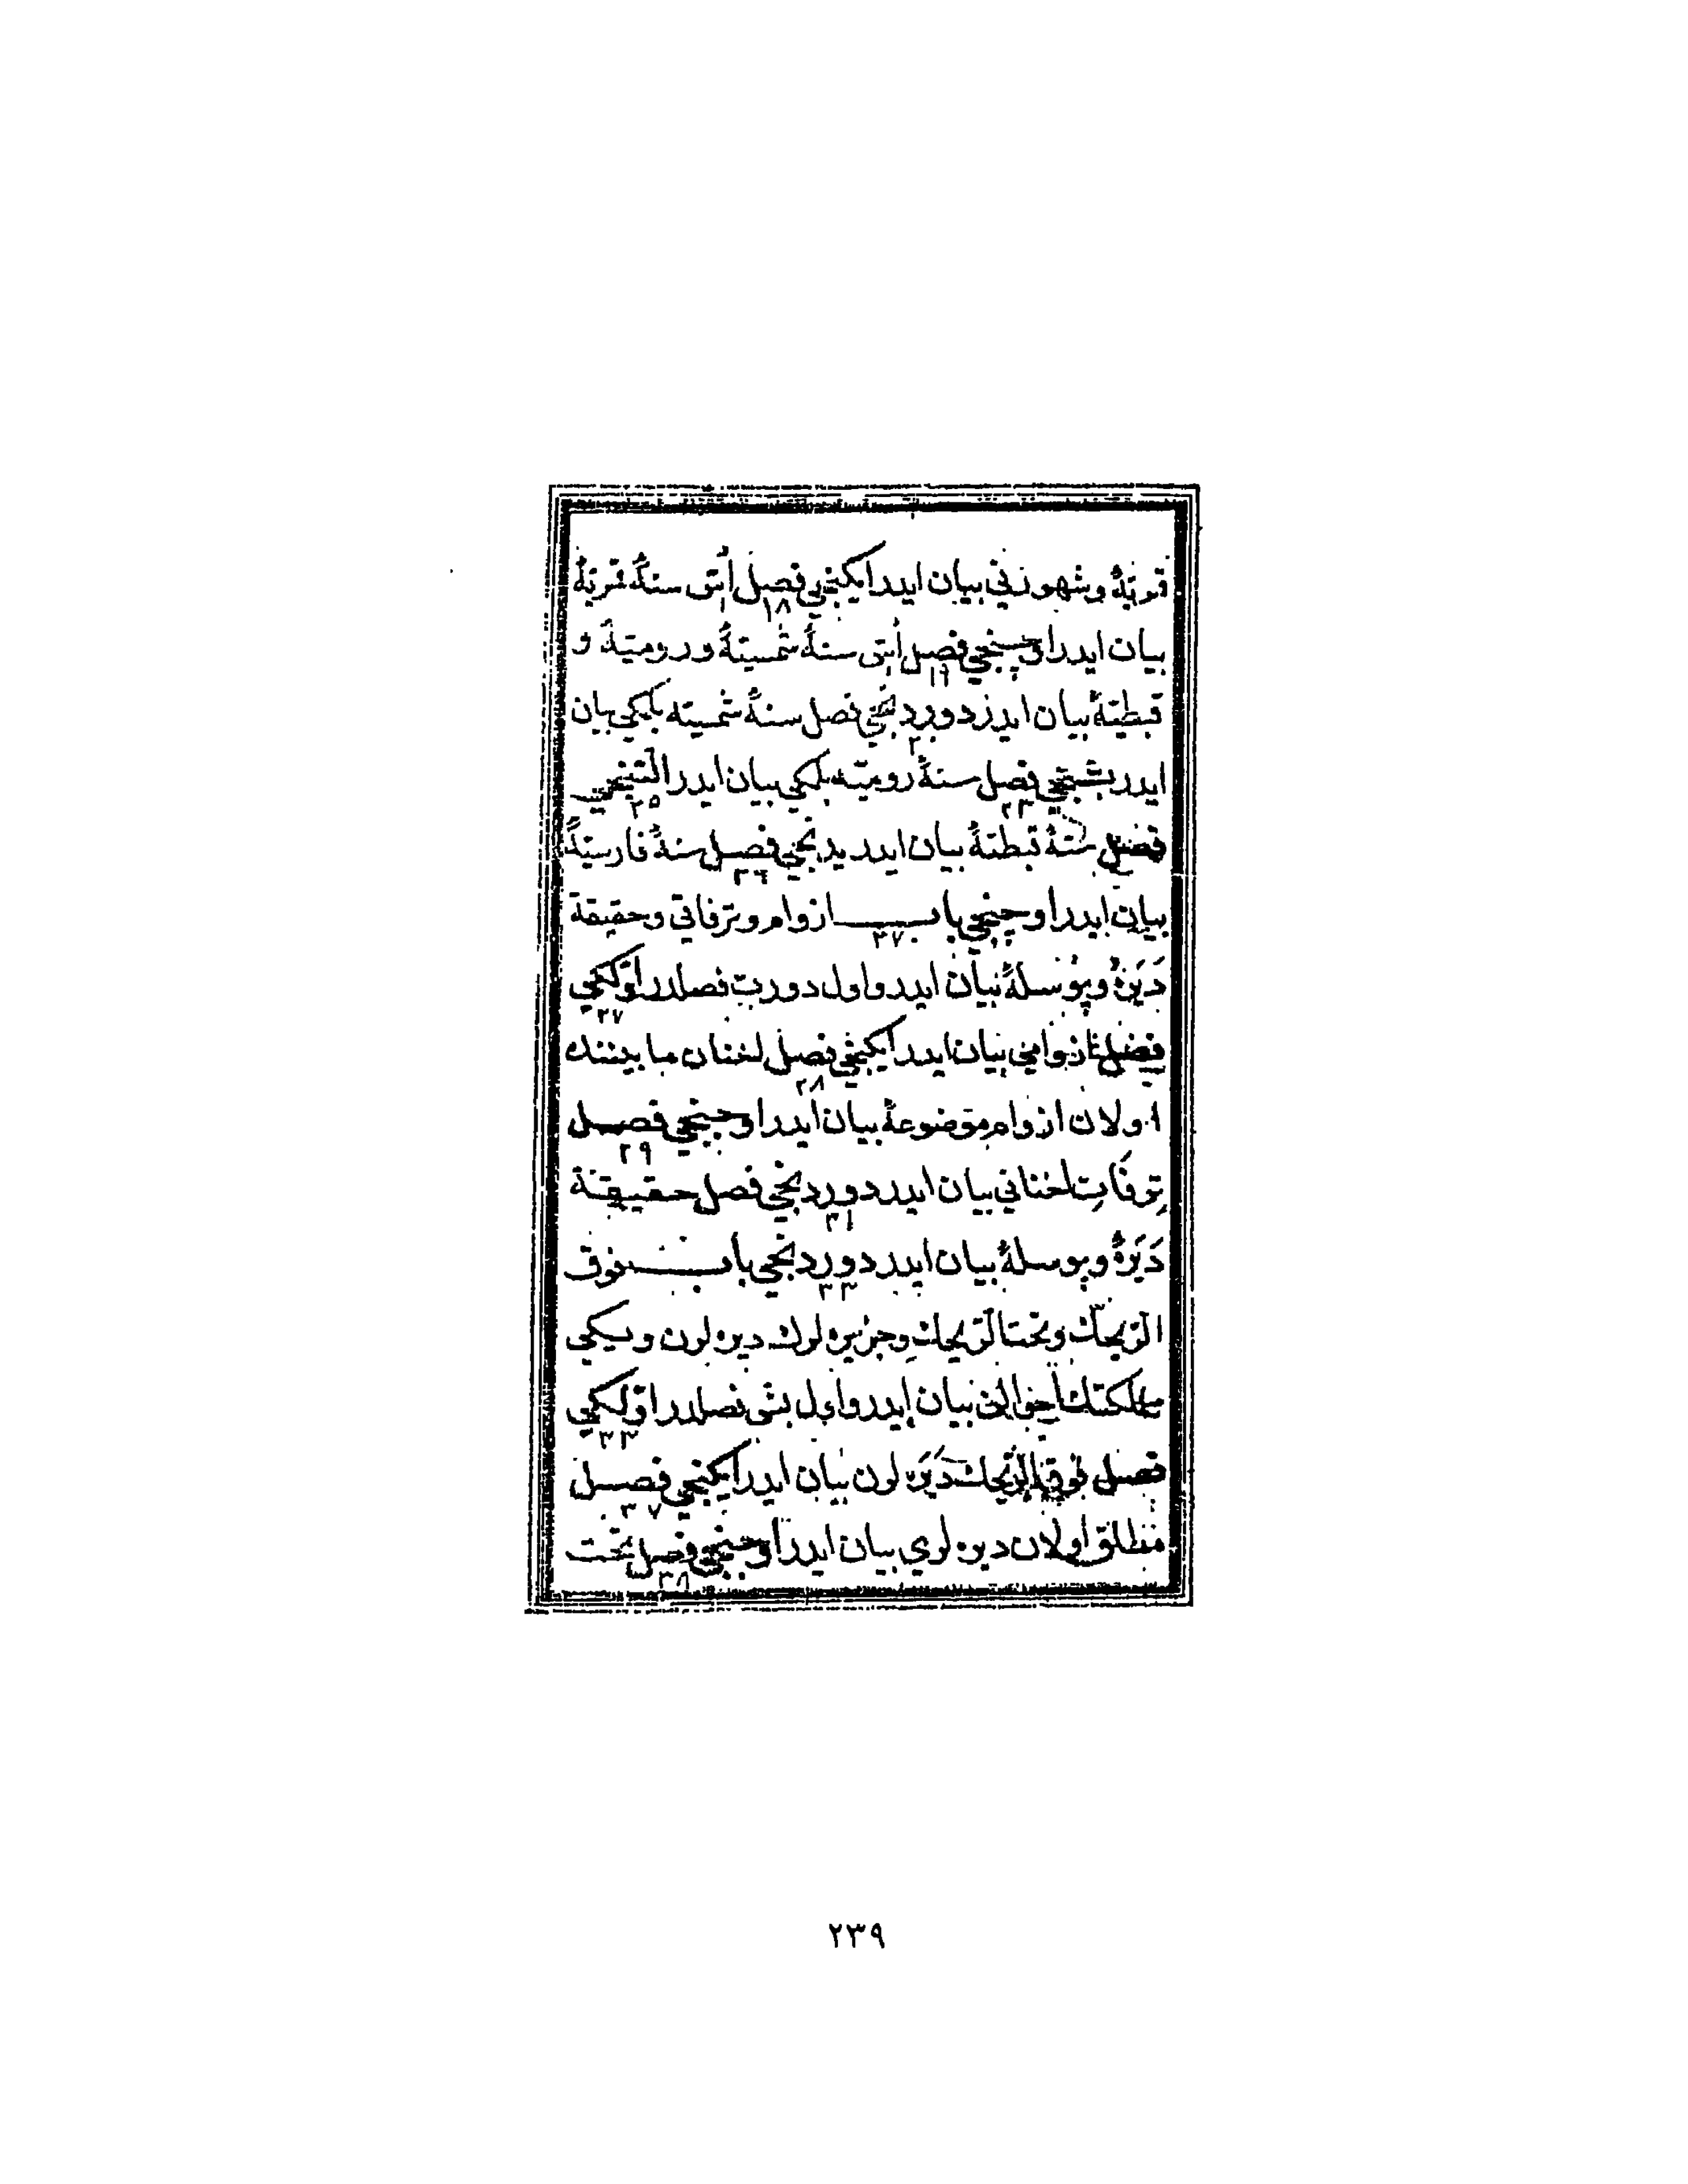 قمریهٔ وشهورنی بیان ایدر ایکنجی فصل اُسّ سنهٔ قمریهٔ
١٨
بیان ایدر اوچنجی فصل اُسّ سنهٔ شمسیّهٔ ورومیّهٔ و
١٩
قبطیّهٔ بیان ایدر دوردنجی فصل سنهٔ شمسیّه بلمکی بیان
ایدر بشنجی فصل سنهٔ رومیّه بلمکی بیان ایدر التنجی
٢٣ ٢٥
فصل سنهٔ قبطیّهٔ بیان ایدر یدنجی فصل سنهٔ فارسیّهٔ
٢٦
بیان ایدر اوچنجی باب ازوام وترفاتی وحقیقة
٢٧
دَیَرَهٔ وپوسلهٔ بیان ایدر واول دورت فصلدر اوّلکی
٢٧
فصل ازوامی بیان ایدر ایکنجی فصل لخنان ما بیننده
٢٨
اولان ازوام موضوعهٔ بیان ایدر اوچنجی فصل
٢٩
تِرفَاتِ لخنانی بیان ایدر دوردنجی فصل حقیقة
٣١
دَیَرَهٔ وپوسلهٔ بیان ایدر دوردنجی باب فوق
٣٣
الرّیحك وتحت الرّیحك وجزیره لرك دیره لرن ویکی
مملکتك احوالن بیان ایدر واول بش فصلدر اوّلکی
٣٣
فصل فوق الرّیحك دَیَرَه لرن بیان ایدر ایکنجی فصل
٣٧
مطلق اولان دیره لری بیان ایدر اوچنجی فصل تحت
٣٨
٢٣٩